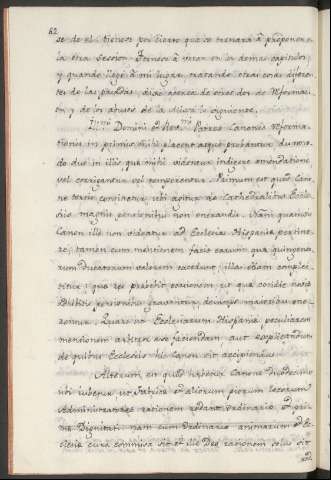 62
se de el tiempo por cierto que se tornará á proponer en
la otra session. Tornose á votar en los demas capitulos
y quando llegó á mi lugar, tratando otras cosas diferen
tes de las pasadas, dixe acerca de otros dos de Reformaci
on y de los abusos de la Missa lo siguiente.
Domini et Rmi. Patres Canones Reforma
tionis in primis mihi placent atque probantur duntaxat
do duo in illis, quæ mihi videntur indigere emendatione
vel corrigantur vel temperentur. Primum est quod Cano
ne tertio continetur, ubi agitur de Cathedralibus Eccle
siis magnis pensionibus non onerandis. Nam quamvis
Canon ille non videatur ad Ecclesias Hispaniæ pertine
re; tamen cum mentionem facit earum quæ quingento
rum ducatorum valorem excedunt; illas etiam complec
titur: quo res præbebit occasionem, ut quæ conditis hactenus
pensionibus gravantur, deinceps maioribus one
rentur. Quare ut Ecclesiarum Hispaniæ peculiarem
mentionem arbitror esse faciendam aut explicandum
de quibus Ecclesiis hic Canon sit accipiendus.
Alterum est quod habetur Canone duodecimo
ubi iubetur ut Hospitalis et aliorum piorum locorum
Administratores rationem reddant ordinario
Dignitati. nam cum Ordinario animarum et Ec
clesiæ cura commissa sit et ille Deo rationem solus sit